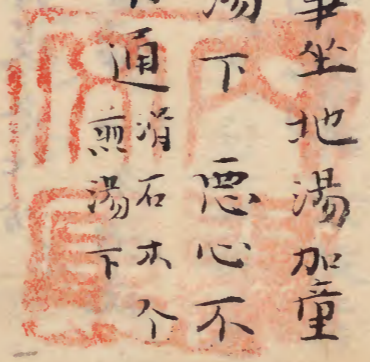 坐地湯加童
湯下 惡心不
通 滑石木个
煎湯下